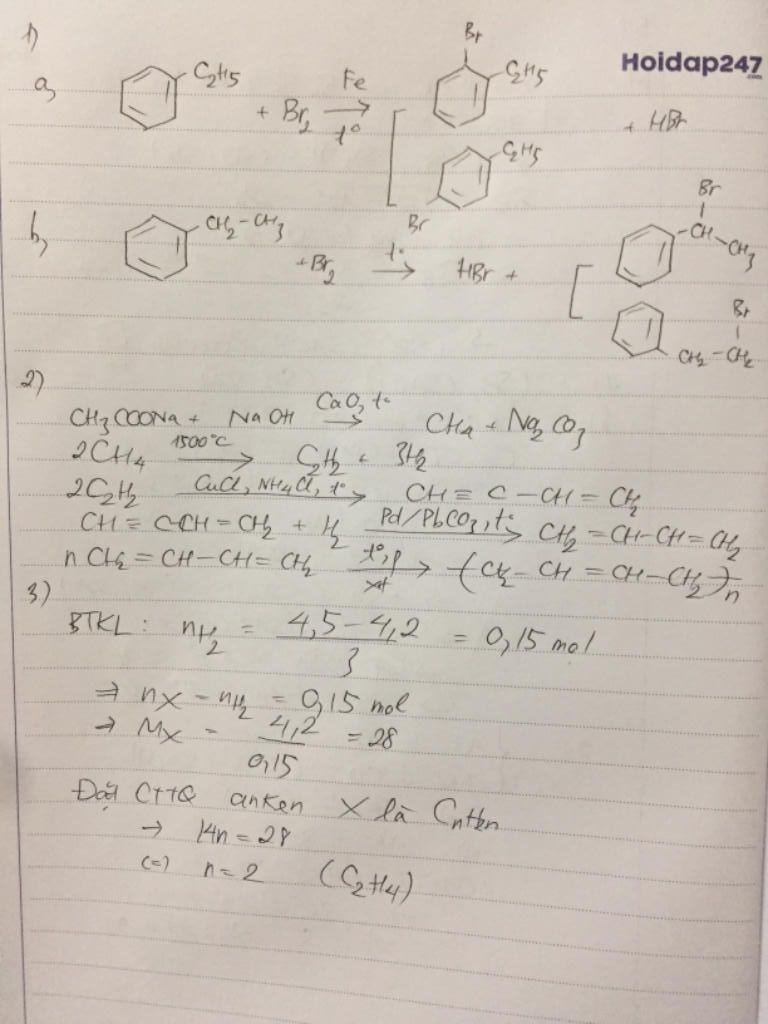 1)
Hoidap247
.com
a, C2H5 + Br2 Fe t° → Br C2H5 + HBr
C2H5
Br
b, CH2 - CH3 + Br2 t° → HBr + Br CH CH3
Br
CH2 - CH2
2)
CH3COONa + NaOH CaO, t° → CH4 + Na2CO3
2CH4 1500°C → C2H2 + 3H2
2C2H2 CuCl, NH4Cl, t° → CH ≡ C - CH = CH2
CH ≡ C-CH = CH2 + H2 Pd/PbCO3, t° → CH2 = CH-CH = CH2
n CH2 = CH - CH = CH2 t°, p xt → (CH2 - CH = CH - CH2)n
3)
BTKL : nH2 = 4,5 - 4,2 / 2 = 0,15 mol
⇒ nX = nH2 = 0,15 mol
→ MX = 4,2 / 0,15 = 28
Đặt CTTQ anken X là CnH2n
→ 14n = 28
(=) n = 2 (C2H4)